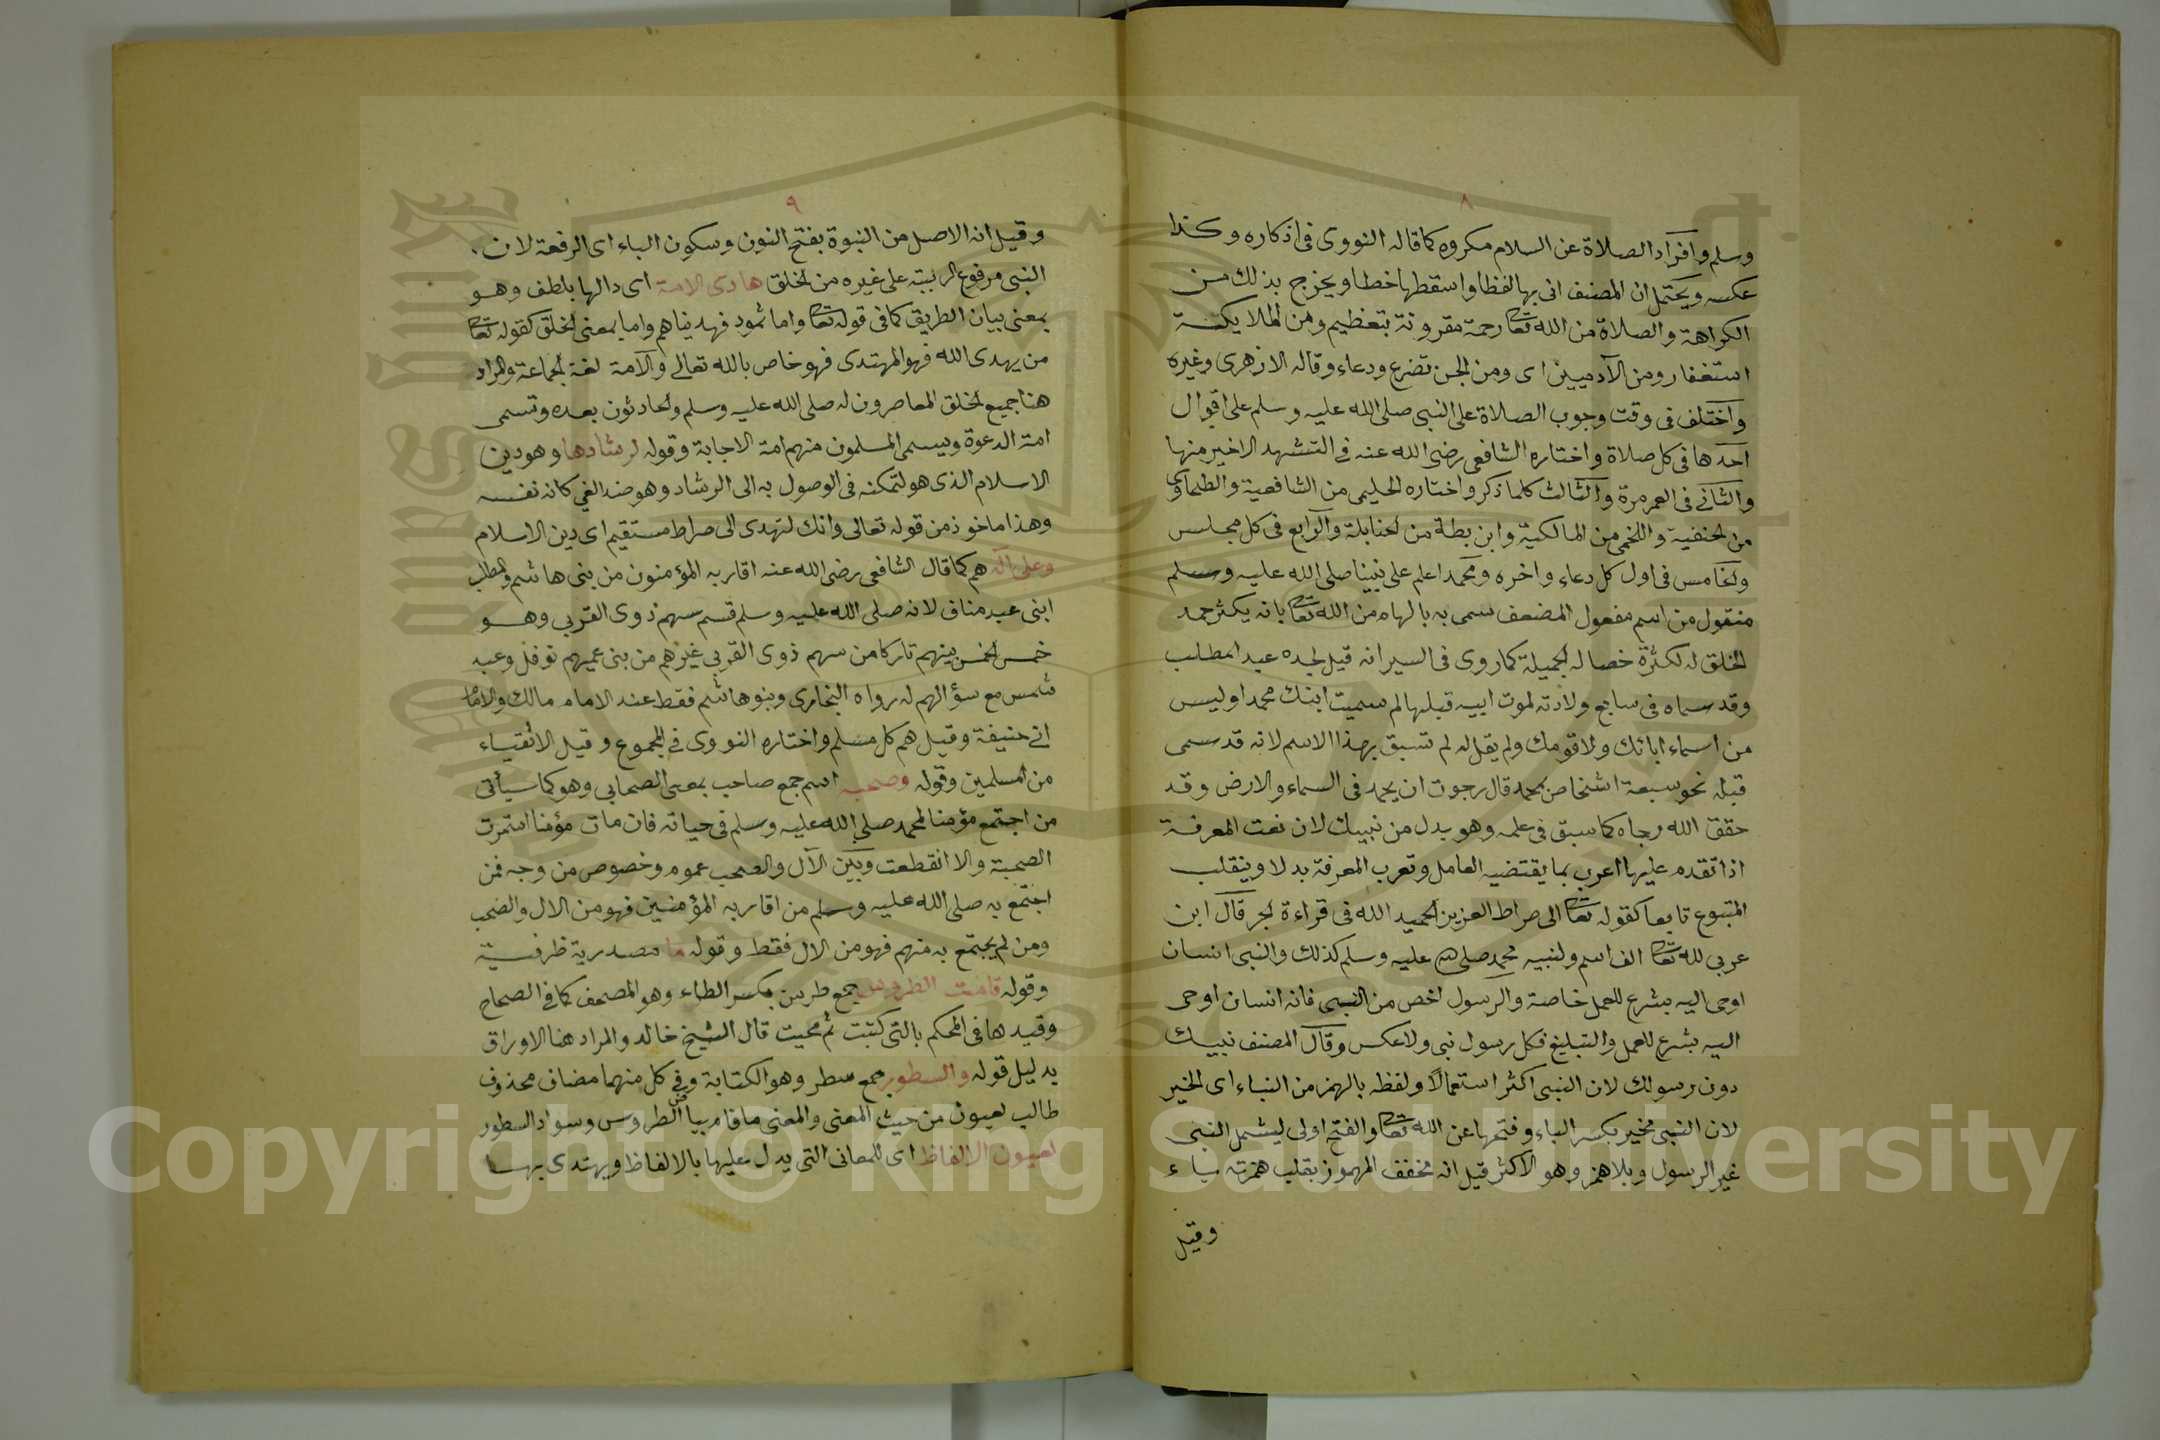 ٨
وسلم وافراد الصلاة عن السلام مكروه كما قاله النووى فى اذكاره وكذا
عكسه ويحتمل ان المصنف اتى بها لفظا واسقطها خطا ويخرج بذلك من
الكراهة والصلاة من الله تعا رحمة مقرونة بتعظيم ومن الملايكة
استغفار ومن الآدميين اى ومن الجن تضرع ودعاء وقاله الازهرى وغيره
واختلف فى وقت وجوب الصلاة على النبى صلى الله عليه وسلم على اقوال
احدها فى كل صلاة واختاره الشافعى رضى الله عنه فى التشهد الاخير منها
والثانى فى العمر مرة والثالث كلما ذكر واختاره الحليمى من الشافعية والطحاوى
من الحنفية واللخمى من المالكية وابن بطة من الحنابلة والرابع فى كل مجلس
والخامس فى اول كل دعاء واخره ومحمد اعلم على نبينا صلى الله عليه وسلم
منقول من اسم مفعول المضعف سمى به بالهام من الله تعا بانه يكثر حمد
الخلق له لكثرة خصاله الجميلة كما روى فى السير انه قيل لجده عبد المطلب
وقد سماه فى سابع ولادته لموت ابيه قبلها لم سميت ابنك محمدا وليس
من اسماء ابائك ولا قومك ولم يقل له لم تسبق بهذا الاسم لانه قد سمى
قبله نحو سبعة اشخاص بمحمد قال رجوت ان يحمد فى السماء والارض وقد
حقق الله رجاه كما سبق فى علمه وهو بدل من نبيك لان نعت المعرفة
اذا تقدم عليها اعرب بما يقتضيه العامل وتعرب المعرفة بدلا وينقلب
المتبوع تابعا كقوله تعا الى صراط العزيز الحميد الله فى قراءة الجر قال ابن
عربى لله تعا الف اسم ولنبيه محمد صلى الله عليه وسلم كذلك والنبى انسان
اوحى اليه بشرع للعمل خاصة والرسول اخص من النبى فانه انسان اوحى
اليه بشرع للعمل والتبليغ فكل رسول نبى ولا عكس وقال المصنف نبيك
دون رسولك لان النبى اكثر استعمالا ولفظه بالهمز من النباء اى الخير
لان النبى مخبر بكسر الباء وفتحها عن الله تعا والفتح اولى ليشمل النبى
غير الرسول وبلا همز وهو الاكثر قيل انه مخفف المهموز بقلب همزته ياء
وقيل
٩
وقيل انه الاصل من النبوة بفتح النون وسكون الباء اى الرفعة لان
النبى مرفوع الرتبة على غيره من الخلق هادى الامة اى دالها بلطف وهو
بمعنى بيان الطريق كما فى قوله تعا واما ثمود فهديناهم واما بمعنى الخلق كقوله تعا
من يهدى الله فهو المهتدى فهو خاص بالله تعالى والامة لغة الجماعة والمراد
هنا جميع الخلق المعاصرون له صلى الله عليه وسلم والحادثون بعده وتسمى
امة الدعوة ويسمى المسلمون منهم امة الاجابة وقوله لرشادها وهو دين
الاسلام الذى هو لتمكنه فى الوصول به الى الرشاد وهو ضد الغي كانه نفسه
وهذا ماخوذ من قوله تعالى وانك لتهدى الى صراط مستقيم اى دين الاسلام
وعلى آله هم كما قال الشافعى رضى الله عنه اقاربه المؤمنون من بنى هاشم والمطلب
ابنى عبد مناف لانه صلى الله عليه وسلم قسم سهم ذوى القربى وهو
خمس الخمس بينهم تاركا من سهم ذوى القربى غيرهم من بنى عميهم نوفل وعبد
شمس مع سؤالهم له رواه البخارى وبنو هاشم فقط عند الامام مالك والامام
ابى حنيفة وقيل هم كل مسلم واختاره النووى فى المجموع وقيل الاتقياء
من المسلمين وقوله وصحبه اسم جمع صاحب بمعنى الصحابى وهو كما سيأتى
من اجتمع مؤمنا لمحمد صلى الله عليه وسلم فى حياته فان مات مؤمنا استمرت
الصحبة والا انقطعت وبين الآل والصحب عموم وخصوص من وجه فمن
اجتمع به صلى الله عليه وسلم من اقاربه المؤمنين فهو من الال والصحب
ومن لم يجتمع به منهم فهو من الال فقط وقوله ما مصدرية ظرفية
وقوله قامت الطروس جمع طرس بكسر الطاء وهو المصحف كما فى الصحاح
وقيدها فى المحكم بالتى كتبت ثم محيت قال الشيخ خالد والمراد هنا الاوراق
بدليل قوله والسطور جمع سطر وهو الكتابة وفى كل منهما مضاف محذوف
طالب لعيون من حيث المعنى والمعنى ما قام بياض الطروس وسواد السطور
لعيون الالفاظ اى للمعانى التى يدل عليها بالالفاظ ويهتدى بها
Copyright © King Saud University